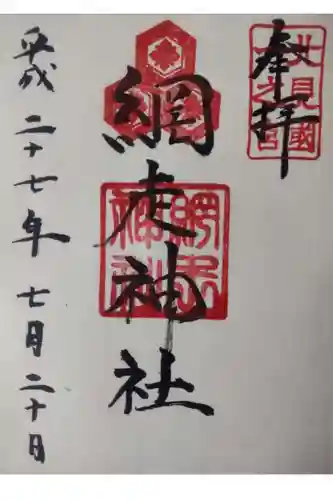 奉拝
北見國一之宮
網走神社
網走神社
平成二十七年七月二十日